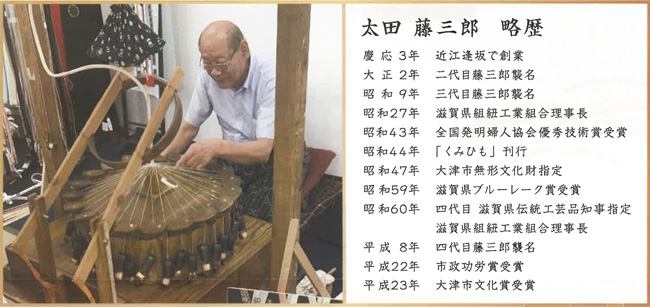 太田 藤三郎 略歴
慶応3年 近江逢坂で創業
大正2年 二代目藤三郎襲名
昭和9年 三代目藤三郎襲名
昭和27年 滋賀県組紐工業組合理事長
昭和43年 全国発明婦人協会優秀技術賞受賞
昭和44年 「くみひも」刊行
昭和47年 大津市無形文化財指定
昭和59年 滋賀県ブルーレーク賞受賞
昭和60年 四代目 滋賀県伝統工芸品知事指定
滋賀県組紐工業組合理事長
平成8年 四代目藤三郎襲名
平成22年 市政功労賞受賞
平成23年 大津市文化賞受賞